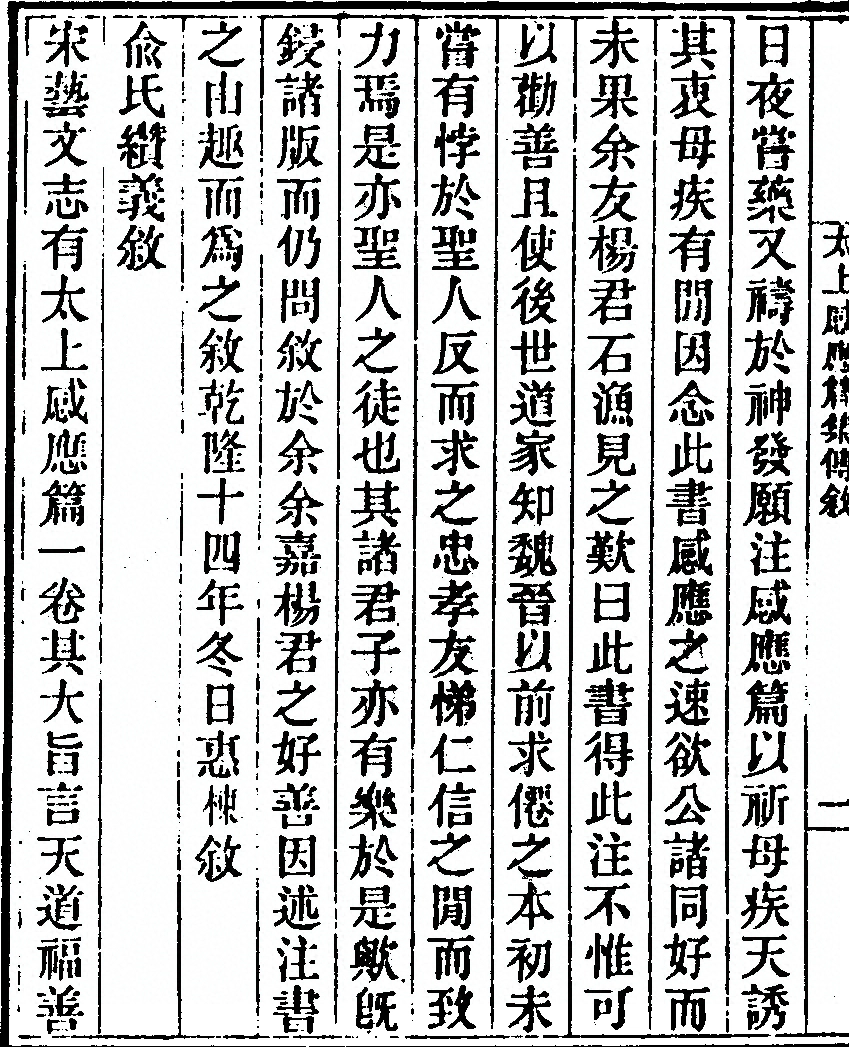 太上感應篇集傳敘
一
日夜嘗藥又禱於神發願注感應篇以祈母疾天誘
其衷母疾有閒因念此書感應之速欲公諸同好而
未果余友楊君石漁見之歎曰此書得此注不惟可
以勸善且使後世道家知魏晉以前求僊之本初未
嘗有悖於聖人反而求之忠孝友悌仁信之閒而致
力焉是亦聖人之徒也其諸君子亦有樂於是歟旣
鋟諸版而仍問敘於余余嘉楊君之好善因述注書
之由趣而爲之敘乾隆十四年冬日惠棟敘
兪氏纘義敘
宋藝文志有太上感應篇一卷其大旨言天道福善